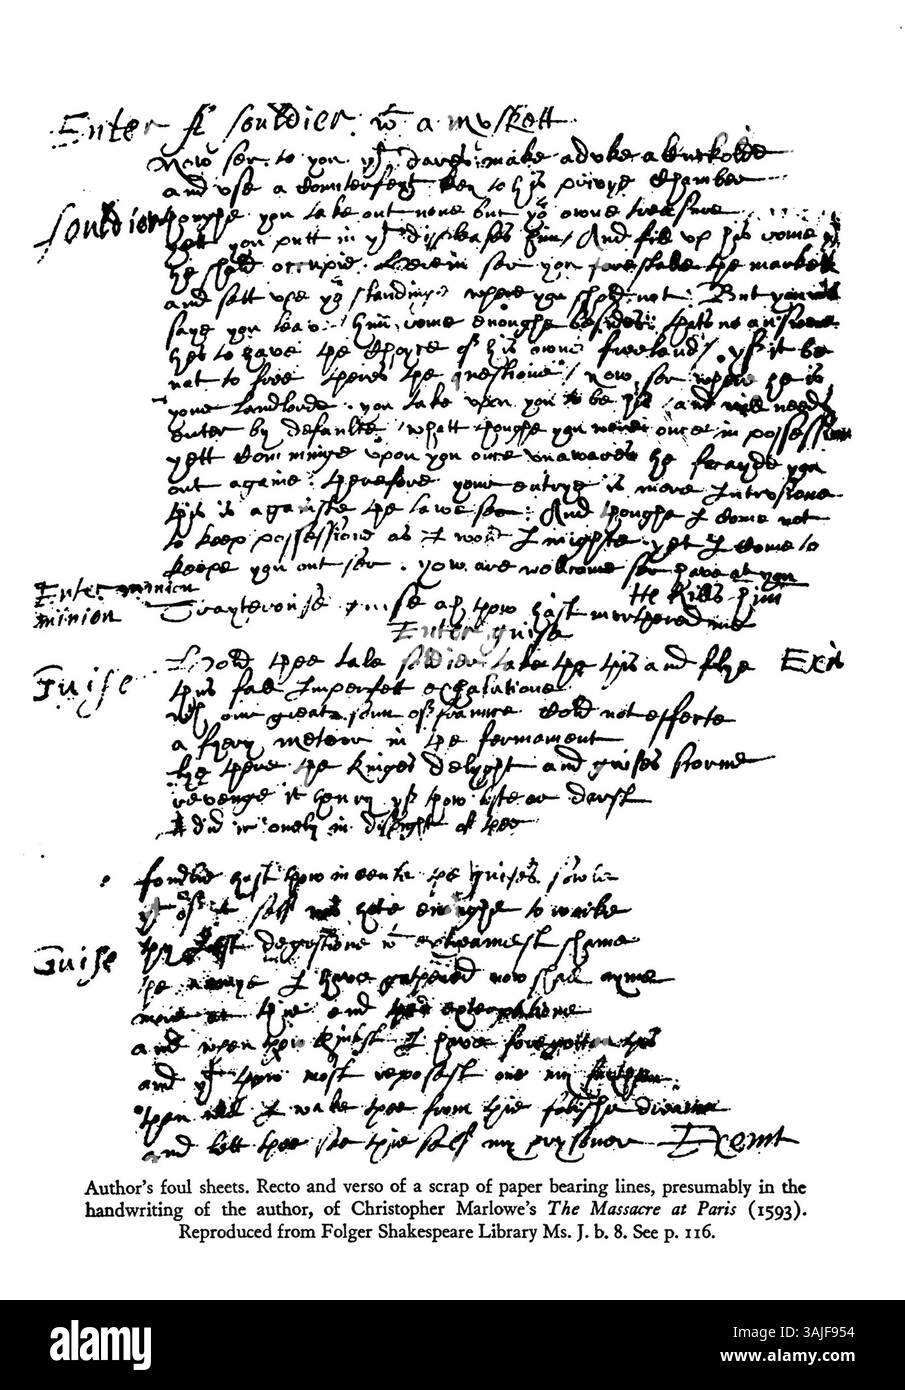 Enter A souldier. wth a muskett
Now ser to you yt dares make a duke a Cuckolde
and vse a Counterfeyt key to his privye Chamber
souldier thoughe you take out none but yor owne treasure
yett you putt in yt displeases him / And fill vp his rome yt
he shold occupie. Herein ser you forestalle the markett
and sett vpe yor standinge where you shold not: But you will
saye you leave him rome enoughe besides: thats no answere
hes to have the Choyce of his owne freeland / yf it be
not to free theres the questione / now ser where he is
your landlorde. you take vpon you to be his / and will needs
enter by defaulte / whatt thoughe you were once in possession
yett Comminge vpon you once vnawares he frayde you
out againe. therefore your entrye is mere Intrusione
this is againste the lawe ser: And thoughe I Come not
to keep possessione as I wold I mighte yet I Come to
keepe you out ser. yow are wellcome ser have at you
He Kills him
Enter minion
minion Trayterouse guise ah thow hast murthered me
Enter guise
Guise Hold thee tale soldier take the this and flye Exit
thus fall Imperfett exhalatione
wch our great sonn of fraunce Cold not effecte
a fyery meteor in the fermament
lye there the Kinges delyght and guises scorne
revenge it henry yf thow liste or darst
I did it onely in dispight of thee
fondlie hast thow in the guises sowle
yt of it self was hote enoughe to worke
Guise thy Just degestione wth extreamest shame
the armye I have gathered now shall ayme
more at thie end then exterpatione
and when thow thinkst I have foregotten this
and yt thow most reposest one my faythe
then will I wake thee from thie folishe dreame
and lett thee see thie self my prysoner Exeunt
Author's foul sheets. Recto and verso of a scrap of paper bearing lines, presumably in the
handwriting of the author, of Christopher Marlowe's The Massacre at Paris (1593).
Reproduced from Folger Shakespeare Library Ms. J. b. 8. See p. 116.
alamy
Image ID: 3AJF954
www.alamy.com